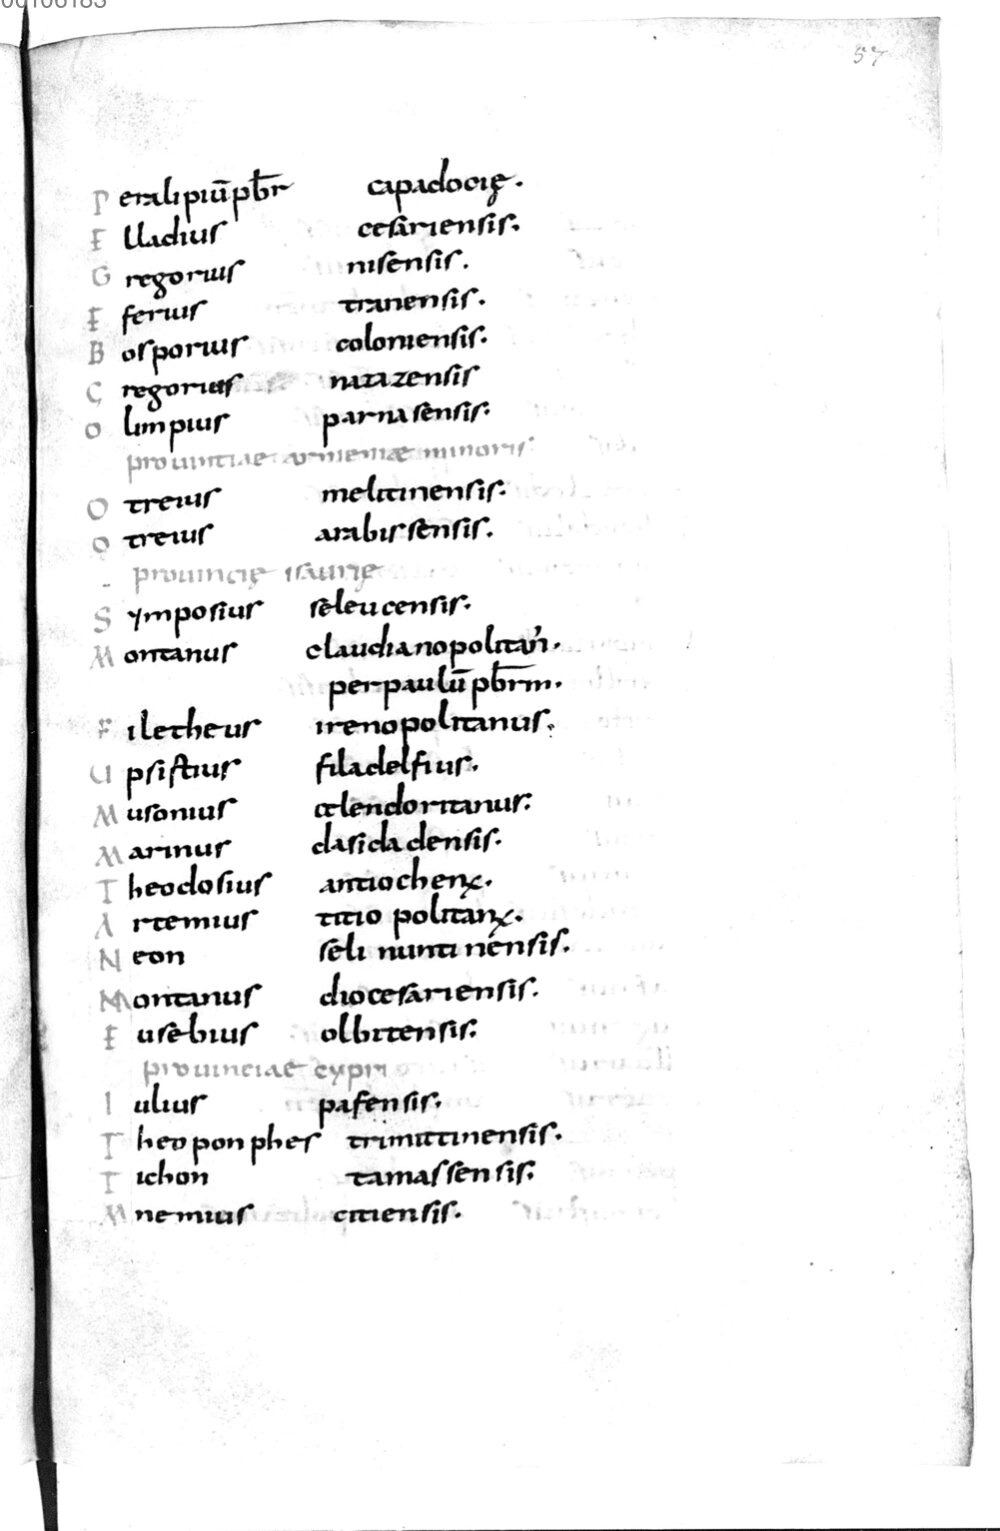 00106183
57
Peralipiū pb̄r capadocię.
Elladius cesariensis.
Gregorius nisensis.
Eferius tranensis.
Bosporius coloniensis.
Gregorius natazensis
Olimpius parnasensis.
prouintiae armeniae minoris
Otreius melitinensis.
Otreius arabissensis.
prouincię isaurię
Symposius seleucensis.
Montanus claudianopolitan̄.
per paulū pb̄rm.
Filetheus irenopolitanus.
Upsistius filadelfius.
Musonius celendoritanus.
Marinus dasidadensis.
Theodosius antiochenꝰ.
Artemius titiopolitanꝰ.
Neon selinuntinensis.
Montanus diocesariensis.
Eusebius olbitensis.
prouinciae cypri
Iulius pafensis.
Theoponphes trimittinensis.
Tichon tamassensis.
Mnemius citiensis.